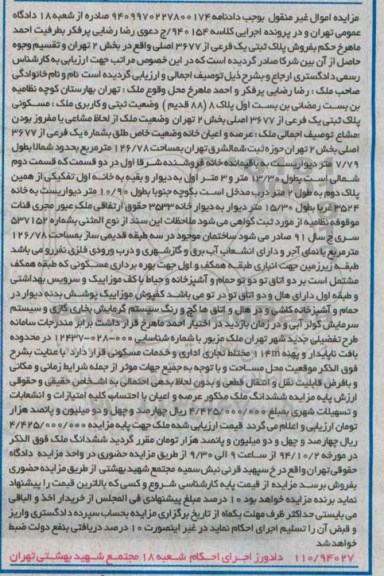 مزایده اموال غیر منقول بموجب دادنامه ۹۴۰۹۹۷۰۲۲۷۸۰۰۱۷۴ صادره از شعبه ۱۸ دادگاه
عمومی تهران و در پرونده اجرایی کلاسه ۹۴۰۱۵۴/ج دعوی رضا رضایی پرفکر بطرفیت احمد
ماهرخ حکم بفروش پلاک ثبتی یک فرعی از ۳۶۷۷ اصلی واقع در بخش ۲ تهران و تقسیم وجوه
حاصل از آن بین شرکا صادر گردیده است که در این خصوص مراتب جهت ارزیابی به کارشناس
رسمی دادگستری ارجاع و بشرح ذیل توصیف اجمالی و ارزیابی گردیده است نام و نام خانوادگی
صاحب ملک : رضا رضایی پرفکر و احمد ماهرخ محل وقوع ملک : تهران بهارستان کوچه نظامیه
بن بست رمضانی بن بست اول پلاک ۸ (۸۸ قدیم) وضعیت ثبتی و کاربری ملک : مسکونی
پلاک ثبتی یک فرعی از ۳۶۷۷ اصلی بخش ۲ تهران وضعیت ملک از لحاظ مشاعی یا مفروز بودن
:مشاع توصیف اجمالی ملک : عرصه و اعیان خانه وضعیت خاص طلق بشماره یک فرعی از ۳۶۷۷
اصلی بخش ۲ تهران حوزه ثبت شمالشرق تهران بمساحت ۱۲۶/۷۸ مترمربع بحدود شمالا بطول
۷/۷۹ متر دیواریست به باقیمانده خانه فروشنده شرقا اول در دو قسمت که قسمت دوم
شمالی است بطول ۱۳/۳۰ متر و ۳ متر اول به دیوار و بقیه به خانه اول تفکیکی از همین
پلاک دوم به طول ۲ متر درب مدخل است بکوچه جنوبا بطول ۱۰/۹۰ متر دیواریست به خانه
۳۵۲۴ غربا بطول ۱۵/۳۰ متر دیوار به دیوار خانه ۳۵۳۳ حقوق ارتفاقی ملک عبور مجری قنات
موقوفه نظامیه از مورد ثبت گواهی می شود ملاحظات این سند از نوع المثنی بشماره ۵۳۷۱۵۲
سری ج سال ۹۱ صادر می شود ساختمان موجود در سه طبقه قدیمی ساز بمساحت ۱۲۶/۷۸
مترمربع با نمای آجر و دارای انشعاب آب برق و گاز شهری و درب ورودی فلزی نفررو می باشد
طبقه زیرزمین جهت انباری طبقه همکف و اول جهت بهره برداری مسکونی که طبقه همکف
مشتمل است بر دو اتاق تو دو تو حمام و آشپزخانه و حیاط با کف موزاییک و سرویس بهداشتی
و طبقه اول دارای هال و دو اتاق تو در تو می باشد کفپوش موزاییک پوشش بدنه دیوار در
حمام و آشپزخانه کاشی و در هال و اتاق ها گچ و رنگ سیستم گرمایش بخاری گازی و سیستم
سرمایش کولر آبی و در زمان بازدید در اختیار احمد ماهرخ قرار داشت برابر مندرجات سامانه
طرح تفصیلی جدید شهر تهران ملک مزبور با شماره شناسایی ۱۲۴۳۷-۰۲۸-۰۰۰ در محدوده
بافت ناپایدار و پهنه m۱۱۴ مختلط تجاری اداری و خدمات مسکونی قرار دارد با عنایت بشرح
فوق الذکر موقعیت محل مساحت و با توجه به جمیع جهات موثر از جمله شرایط زمانی و مکانی
و بافرض قابلیت نقل و انتقال قطعی و بدون لحاظ بدهی احتمالی به اشخاص حقیقی و حقوقی
ارزش پایه مزایده ششدانگ ملک مذکور عرصه و اعیان با احتساب کلیه امتیازات و انشعابات
و تسهیلات شهری بمبلغ ۴/۴۲۵/۰۰۰/۰۰۰ ریال چهارصد و چهل و دو میلیون و پانصد هزار
تومان ارزیابی و اعلام می گردد قیمت ارزیابی شده ملک جهت پایه مزایده ۴/۴۲۵/۰۰۰/۰۰۰
ریال چهارصد و چهل و دو میلیون و پانصد هزار تومان مقرر گردید ششدانگ ملک فوق الذکر
در مورخه ۹۴/۱۰/۲ از ساعت ۹ الی ۹/۳۰ از طریق مزایده حضوری در واحد مزایده دادگاه
حقوقی تهران واقع در خ سپهبد قرنی نبش سمیه مجتمع شهید بهشتی از طریق مزایده حضوری
بفروش برسد مزایده از قیمت پایه کارشناسی شروع و کسی که بالاترین قیمت را پیشنهاد
نماید برنده مزایده خواهد بود ۱۰ درصد مبلغ پیشنهادی فی المجلس از خریدار اخذ و الباقی
می بایستی حداکثر ظرف مهلت یکماه از تاریخ برگزاری مزایده بحساب سپرده دادگستری واریز
و قبض آن را تسلیم اجرای احکام نماید در غیر اینصورت ۱۰ درصد دریافتی بنفع دولت ضبط
خواهد شد
۱۱۰/۹۴۰۲۷ دادورز اجرای احکام شعبه ۱۸ مجتمع شهید بهشتی تهران